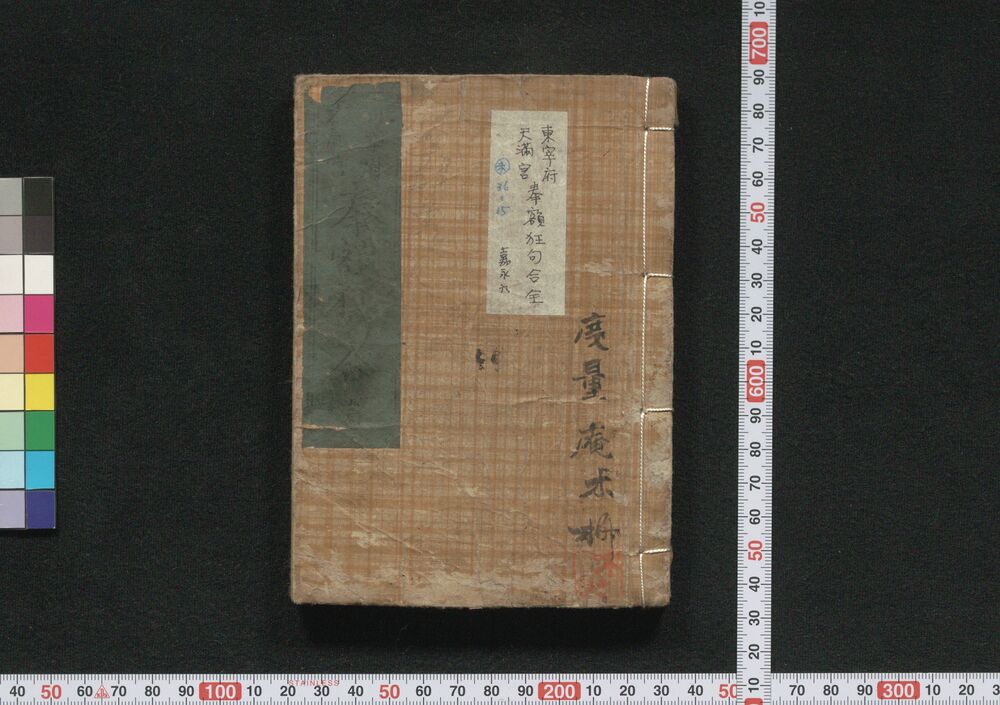 東宰府
天満宮
奉額狂句合全
嘉永九
朱
36-15
度量庵米柳
STAINLESS
40 50 60 70 80 90 100 10 20 30 40 50 60 70 80 90 200 10 20 30 40 50 70 80 90 300 10 20 3
10 700 90 80 70 60 50 40 30 20 10 600 90 80 70 60 50 40 30 20 10